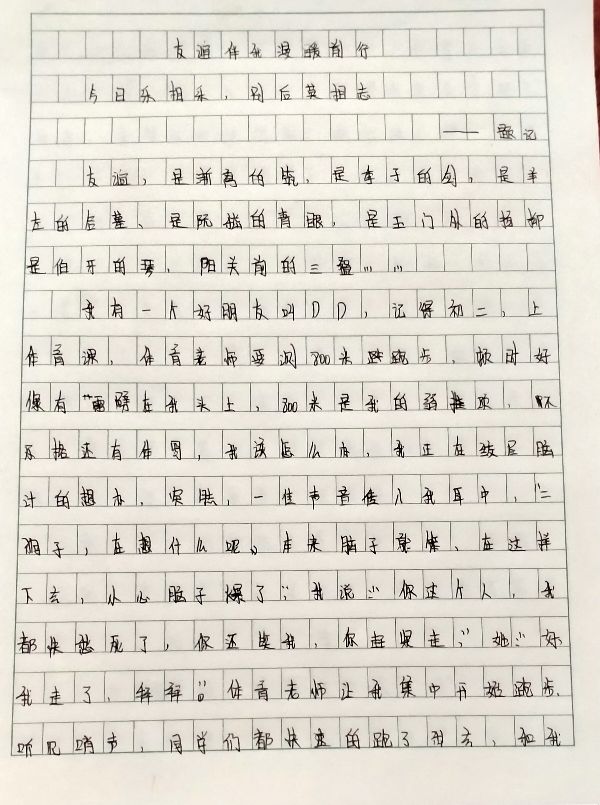 友谊伴我温暖前行
今日乐相乐，别后莫相忘
——题记
友谊，是渐离的筑，是季子的剑，是羊
左的后墓、是阮籍的青眼，是玉门外的杨柳
是伯牙的琴，阳关前的三叠……
我有一个好朋友叫DD，记得初二，上
体育课，体育老师要测800米跑步，顿时好
像有“雷”劈在我头上，800米是我的弱推项，怀
不格还有体罚，我该怎么办，我正在绞尽脑
汁的想办，突然，一佳声音传入我耳中，“二
胡子，在想什么呢。本来脑子就笨、在这样
下去，小心脑子爆了”；我说：“你这个人，我
都快愁死了，你还笑我，你赶紧走，”她：“好
我走了，拜拜。”体育老师让我集中开始跑步.
听见哨声，同学们都快速的跑了出去，和我